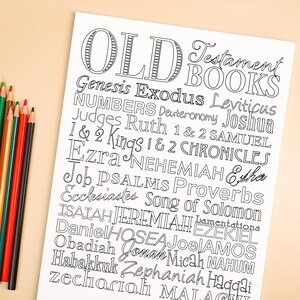 OLD Testament BOOKS
Genesis Exodus Leviticus
NUMBERS Deuteronomy Joshua
Judges Ruth 1 & 2 SAMUEL
1 & 2 Kings 1 & 2 CHRONICLES
Ezra NEHEMIAH Esther
Job PSALMS Proverbs
Ecclesiastes Song of Solomon
ISAIAH JEREMIAH Lamentations EZEKIEL
Daniel HOSEA Joel AMOS
Obadiah Jonah Micah NAHUM
Habakkuk Zephaniah Haggai
zechariah MALACHI